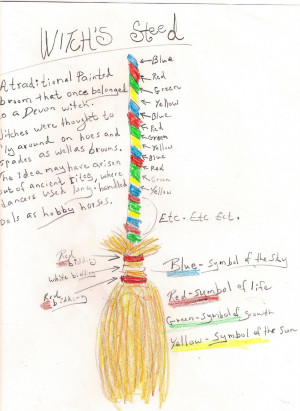 WITCH'S Steed
A traditional Painted
broom that once belonged
to a Devon witch.
Witches were thought to
fly around on hoes and
spades as well as brooms.
The idea may have arisen
out of ancient rites, where
dancers used long-handled
tools as hobby horses.
Blue
Red
Green
Yellow
Blue
Red
Green
Yellow
Blue
Red
Green
Yellow
Etc. Etc Ect.
Red binding
white binding
Red binding
Blue - Symbol of the sky
Red - symbol of life
Green - Symbol of Growth
Yellow - Symbol of the sun